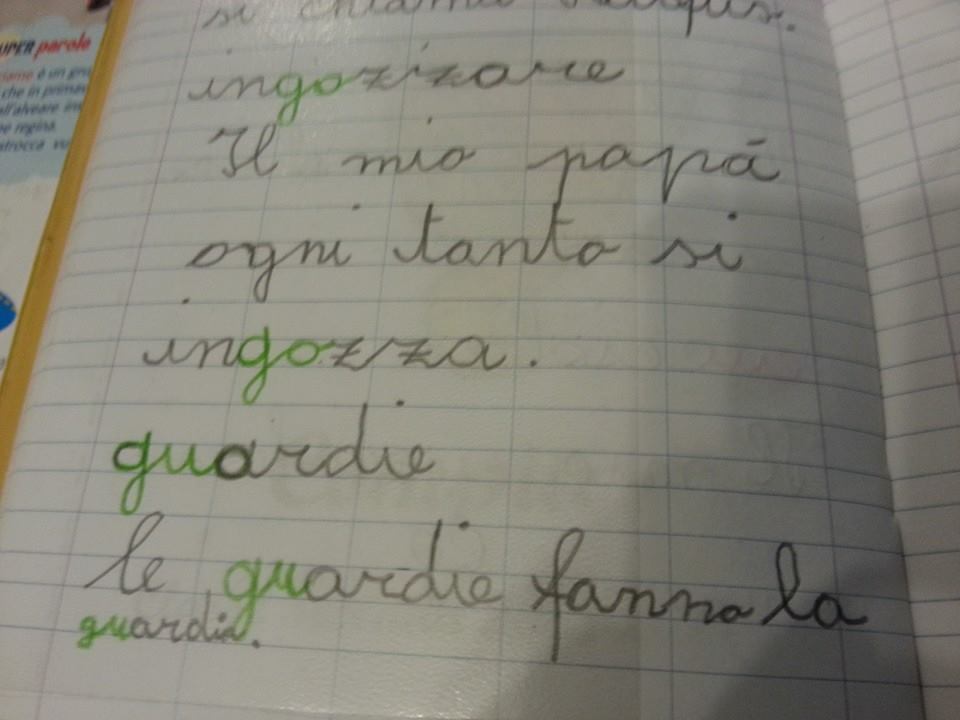 UPER parole
che in primav
all'alveare
regina.
si chiama
ingozizare
Il mio papà
ogni tanto si
ingozza.
guardie
le guardie fanno la
guardia.